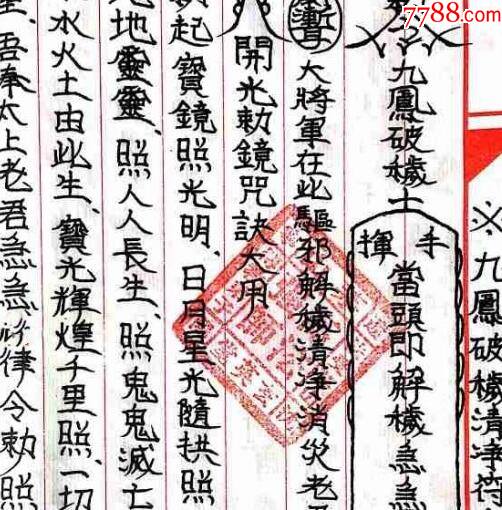 7788.com
※九鳳破穢清淨符
九鳳破穢士
手揮
當頭即解穢急急
大將軍在此驅邪解穢清净消災老
開光勅鏡咒訣大用
起寶鏡照光明、日月星光隨拱照
地靈靈、照人人長生、照鬼鬼滅亡
水火土由此生、寶光輝煌千里照、一切
吾奉太上老君急急如律令勅照